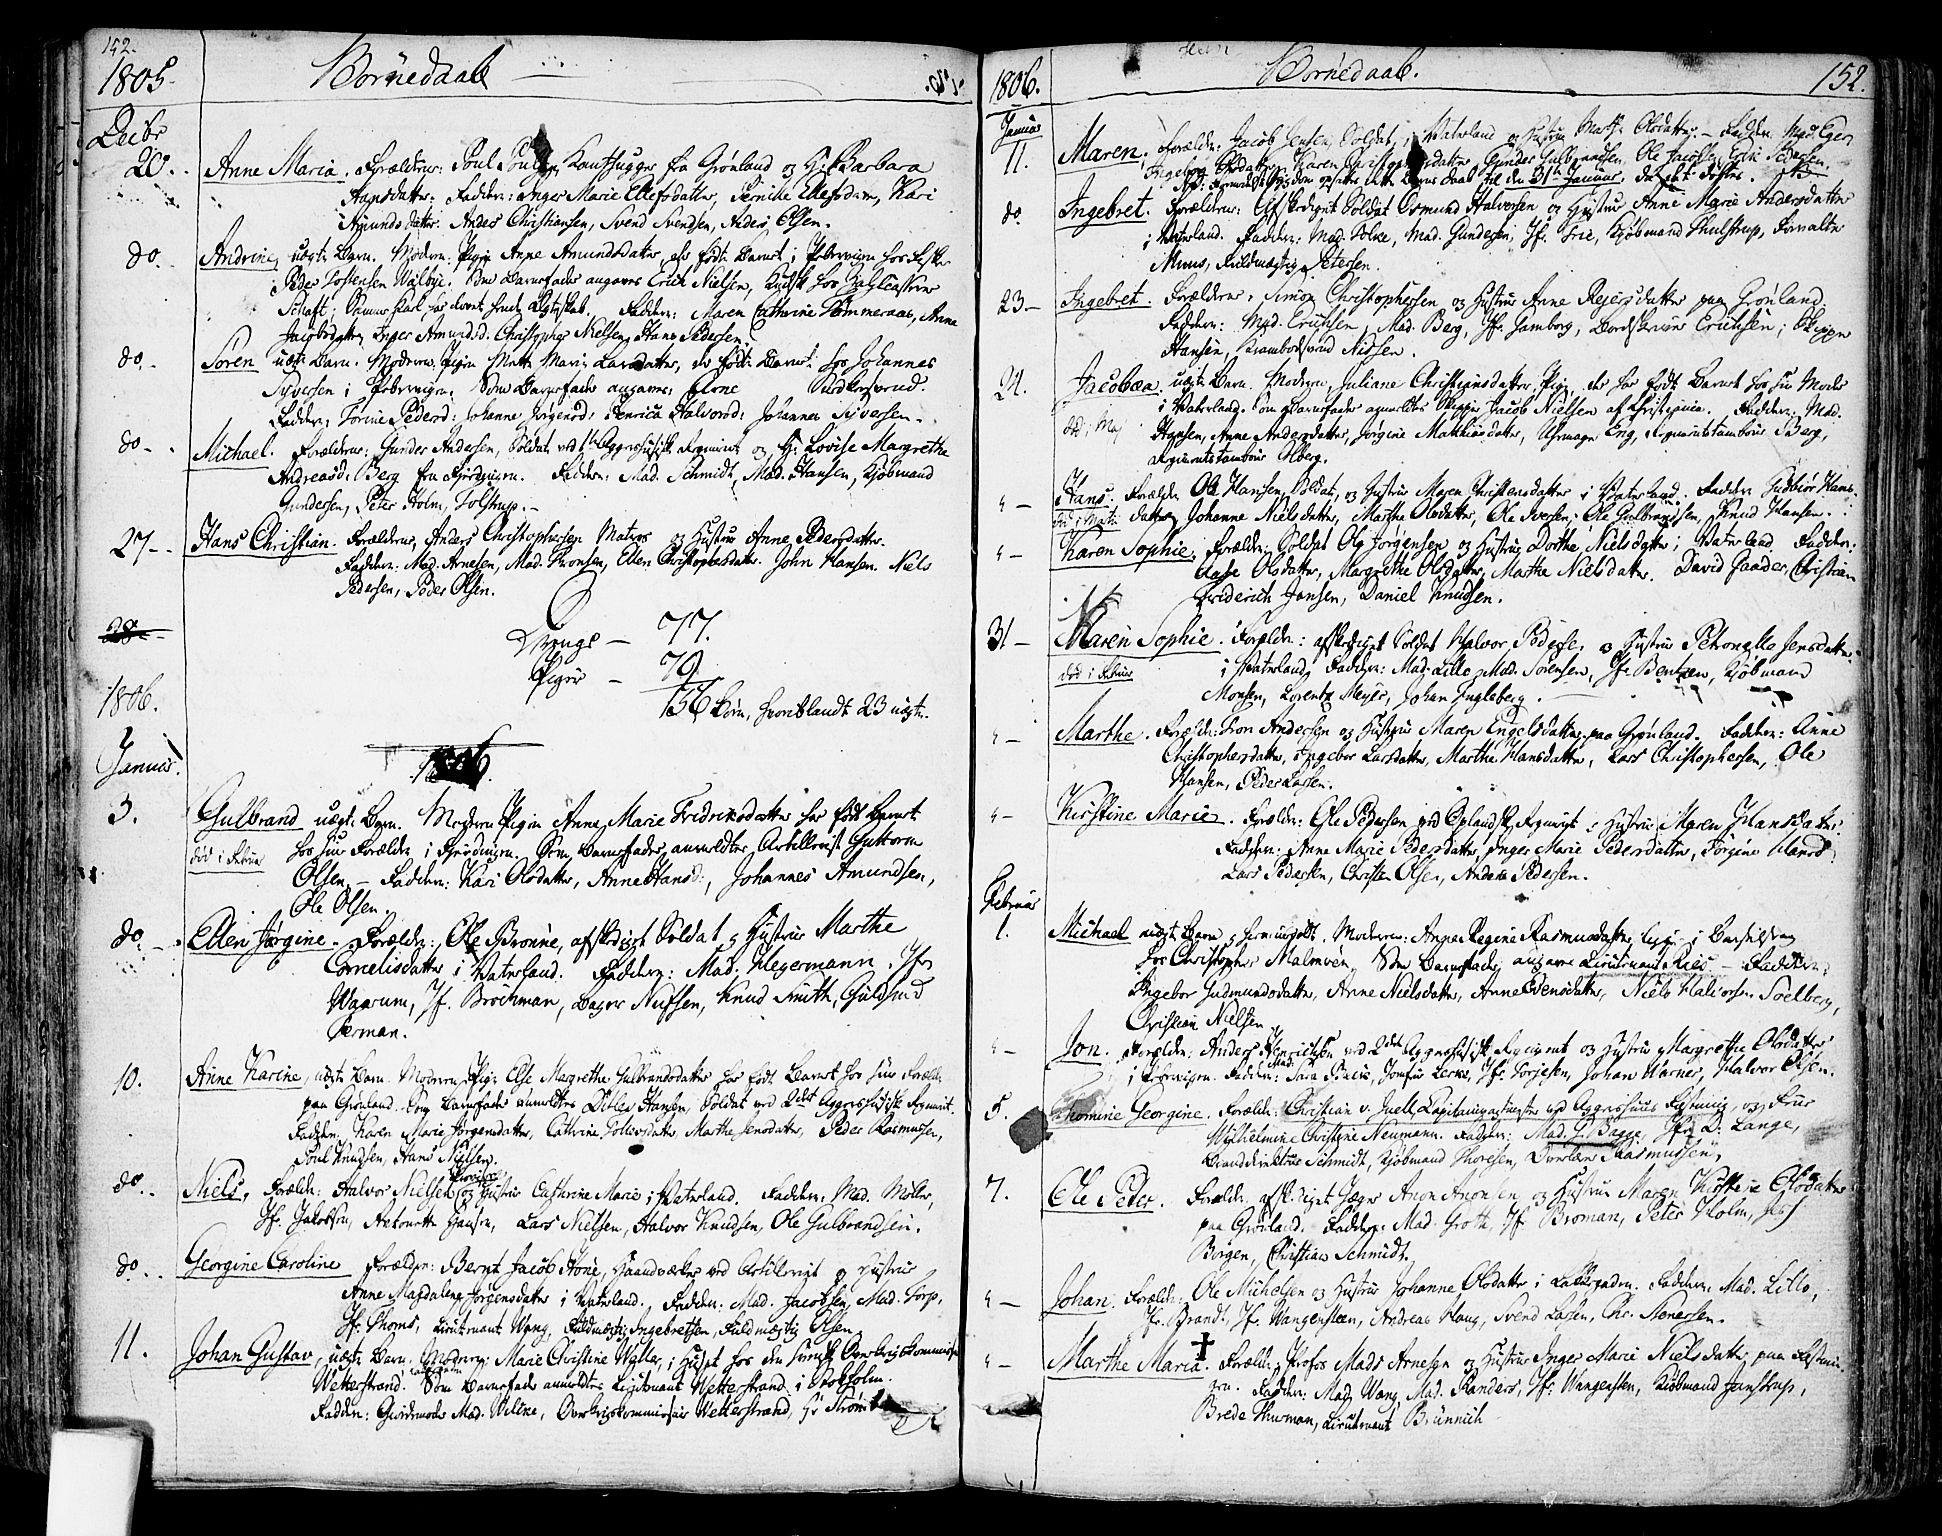 152.
1805. Börnedaab
Decbr
20. Anne Maria. Forældrene: Poul Kanthugger fra Grönland og H: Barbara
Hansdatter. Fadderne: Inger Marie Ellefsdatter, Pernille Ellefsdatter, Kari
Amundsdatter. Anders Christiansen, Svend Svendsen, Anders Olsen.
do. Andrine, uægte Barn. Moderen Pigen Anne Amundsdatter, der födte Barnet i Pebervigen hos
Peder Torstensen. Som Barnefader angaves Erich Nielsen, Kudsk hos
Samme Karl har lovet hende Ægteskab. Faddere: Maren Cathrine Anne
Jacobsdatter, Inger Amundsd. Christopher Nielsen, Hans Pedersen.
do. Sören uægte Barn. Moderen Pigen Mette Marie Larsdatter, der födte Barnet hos Johannes
Syversen i Pebervigen. Som Barnefader angaves Arne
Faddere: Torine Pedersd: Johanne Jörgensd: Henrica Halvorsd: Johannes Syversen.
do. Michael. Forældrene: Gunder Andersen, Soldat ved Aggershusiske Regiment og H: Lovise Margrethe
Andreasd: Berg fra Fierdingen. Faddere: Mad. Schmidt, Mad. Hansen, Kjöbmand
Gundersen, Peter Holm, Tolstrup.
27. Hans Christian. Forældrene, Anders Christophersen Matros og Hustrue Anne Pedersdatter.
Faddere: Mad. Arnesen, Mad. Ellen Christophersdatter. John Hansen. Niels
Pedersen, Peder Olsen.
28
Drenge — 77.
Piger — 79
156 Börn, hvoriblandt 23 uægte.
1806.
Januar. 1806.
3. Gulbrand uægte Barn. Moderen Pigen Anne Marie Fridriksdatter har födt Barnet
död i Februar hos sine Forældre i Fjerdingen. Som Barnefader anmeldtes Artillerist Guttorm
Olsen. — Faddere: Kari Olsdatter, Anne Hansd:, Johannes Amundsen,
Ole Olsen.
do. Ellen Jörgine. Forældre: Ole Brönne, afskediget Soldat og Hustrue Marthe
Cornelisdatter i Vaterland. Faddere: Mad. Hegermann. Jfr
Waarum, Jf. Bröchman, Bager Nissen, Knud Smith, Guldsmed
Perman.
10. Anne Karine, uægte Barn. Moderen, Pige Else Margrethe Gulbrandsdatter har födt Barnet hos sine Forældre
paa Grönland. Som Barnefader anmeldtes Ditlev Hansen, Soldat ved 2det Aggershusiske Regiment.
Faddere. Karen Marie Jörgensdatter, Cathrine Tollevsdatter, Marthe Jensdatter, Peder Rasmussen,
Poul Knudsen, Hans Nielsen.
do. Niels. Forældre: Halvor Nielsen og Hustrue Cathrine Marie i Vaterland. Faddere: Mad. Möller,
Jf. Jakobsen, Antonette Hansen, Lars Nielsen, Halvor Knudsen, Ole Gulbrandsen.
do. Georgine Caroline Forældre: Bernt Jacob Höne, Haandværker ved Artilleriet og Hustrue
Anne Magdalena Jörgensdatter i Vaterland. Faddere: Mad. Jacobsen, Mad. Torp,
Jf. Thoms, Lieutenant Wang, Fuldmægtig Ingebretsen, Fuldmægtig Olsen.
11. Johan Gustav, uægte Barn. Moderen: Marie Christine Wäller, i Huset hos den svenske Overkrigskommissair
Wetterstrand. Som Barnefader anmeldtes Lieutenant Wetterstrand i Stokholm.
Faddere: Giordemoder Mad. Wiline, Overkrigskommissair Wetterstrand, Hr Ström
1806. Börnedaab. 152.
Januar
11. Maren. Forældre: Jacob Jensen, Soldat, i Vaterland og Hustrue Marthe Olsdatter. — Faddere: Mad Eger,
Ingeborg Olsdatter, Karen Christophersdatter, Gunder Gulbrandsen, Ole Jacobsen, Erik Pedersen.
dette Barns Daab til den 31te Januar, da det
do. Ingebret. Forældrene: Afskediget Soldat Osmund Halvorsen og Hustrue Anne Marie Andersdatter
i Vaterland. Faddere: Mad. Holm, Mad. Gundersen, Jf. Trie, Kjöbmand Thulstrup, Forvalter
Muus, Fuldmægtig Petersen.
23. Ingebret. Forældrene, Simon Christophersen og Hustrue Anne Rejersdatter paa Grönland.
Faddere: Mad. Erichsen, Mad. Berg, Jf. Tamborg, Erichsen, Skipper
Hansen, Nissen.
24. Jacobæa uægte Barn. Moderen, Juliane Christiansdatter, Pige, der har födt Barnet hos sin Moder
i Vaterland. Som Barnefader anmeldtes Skipper Jacob Nielsen af Christiania. Faddere: Mad.
död i Maj Hansen, Anne Andersdatter, Jörgine Matthiasdatter, Uhrmager Eng, Regimentstambour Berg,
Regimentstambour Olberg.
" Hans. Forældre Ole Hansen, Soldat, og Hustrue Maren Christensdatter i Vaterland. Faddere Gudbiör Hans-
död i Marti datter, Johanne Nielsdatter, Marthe Olsdatter, Ole Iversen, Ole Gulbrandsen, Knud Hansen.
" Karen Sophie. Forældre: Soldat Ole Jörgensen og Hustrue Dorthe Nielsdatter i Vaterland Faddere:
Aase Olsdatter, Margrethe Olsdatter, Marthe Nielsdatter. David Gaarder, Christian
Friderich Jansen, Daniel Knudsen.
31 Maren Sophie. Forældre: afskediget Soldat Halvor Pedersen og Hustrue Petronelle Jensdatter
död i Febr i Vaterland Faddere: Mad: Lillo Mad. Sörensen, Jf. Bentzen, Kjöbmand
Monsen, Lorentz Meyer, Johan Fugleberg.
" Marthe. Forældre: Tron Andersen og Hustrue Maren Engelsdatter paa Grönland. Faddere: Anne
Christophersdatter, Ingebor Larsdatter, Marthe Hansdatter, Lars Christophersen, Ole
Hansen, Peder Larsen.
" Kirstine Marie. Forældre: Ole Pedersen ved Oplandske Regiment og Hustrue Maren Hansdatter.
Faddere: Anne Marie Pedersdatter, Inger Marie Pedersdatter, Jörgine Hansd
Lars Pedersen, Christen Olsen, Anders Pedersen.
Februar
1. Michael uægte Barn, hjemmedöbt. Moderen: Anne Regine Rasmusdatter, ligger i Barselseng
hos Christopher Malmoen. Som Barnefader angaves Lieutenant Ries — Faddere:
Ingebor Gudmundsdatter, Anne Nielsdatter, Anne Svensdatter, Niels Halvorsen Soelberg,
Christian Nielsen.
" Jon. Forældre: Anders Henrichsen ved 2det Aggershusiske Regiment og Hustrue Margrethe Olsdatter
i Pebervigen. Faddere: Mad Sara Jomfrue Lerke, Jfr. Torjesen, Johan Warner, Halvor Olsen.
5. Thomine Georgine. Forældre: Christian v. Juell, Capitainvagtmester ved Aggershuus Fæstning, og Frue
Wilhelmine Christine Neumann. Faddere: Mad. G. Bagge, Jfr. D. Lange,
Branddirekteur Schmidt, Kjöbmand Thoresen, Overlærer Rasmussen.
7. Ole Peder. Forældre, afskediget Jæger Anon Anonsen og Hustrue Maren Kirstine Olsdatter
paa Grönland. Faddere: Mad. Groth, Jf. Broman, Peter Holm, Jens
Borgen, Christian Schmidt.
" Johan. Forældre: Ole Michelsen og Hustrue Johanne Olsdatter i Lakkegaden. Faddere: Mad. Lillo,
Jf. Brandt, Jf. Wangensteen, Andreas Haug, Svend Lassen, Chr. Tönnesen.
" Marthe Maria. Forældre, Profos Mads Arnesen og Hustrue Inger Marie Nielsdatter paa Fæstnin-
gen. Faddere: Mad. Wang, Mad. Randers, Jf. Wangensten, Kjöbmand Jenstrup,
Brede Thurman, Lieutenant Brünnich